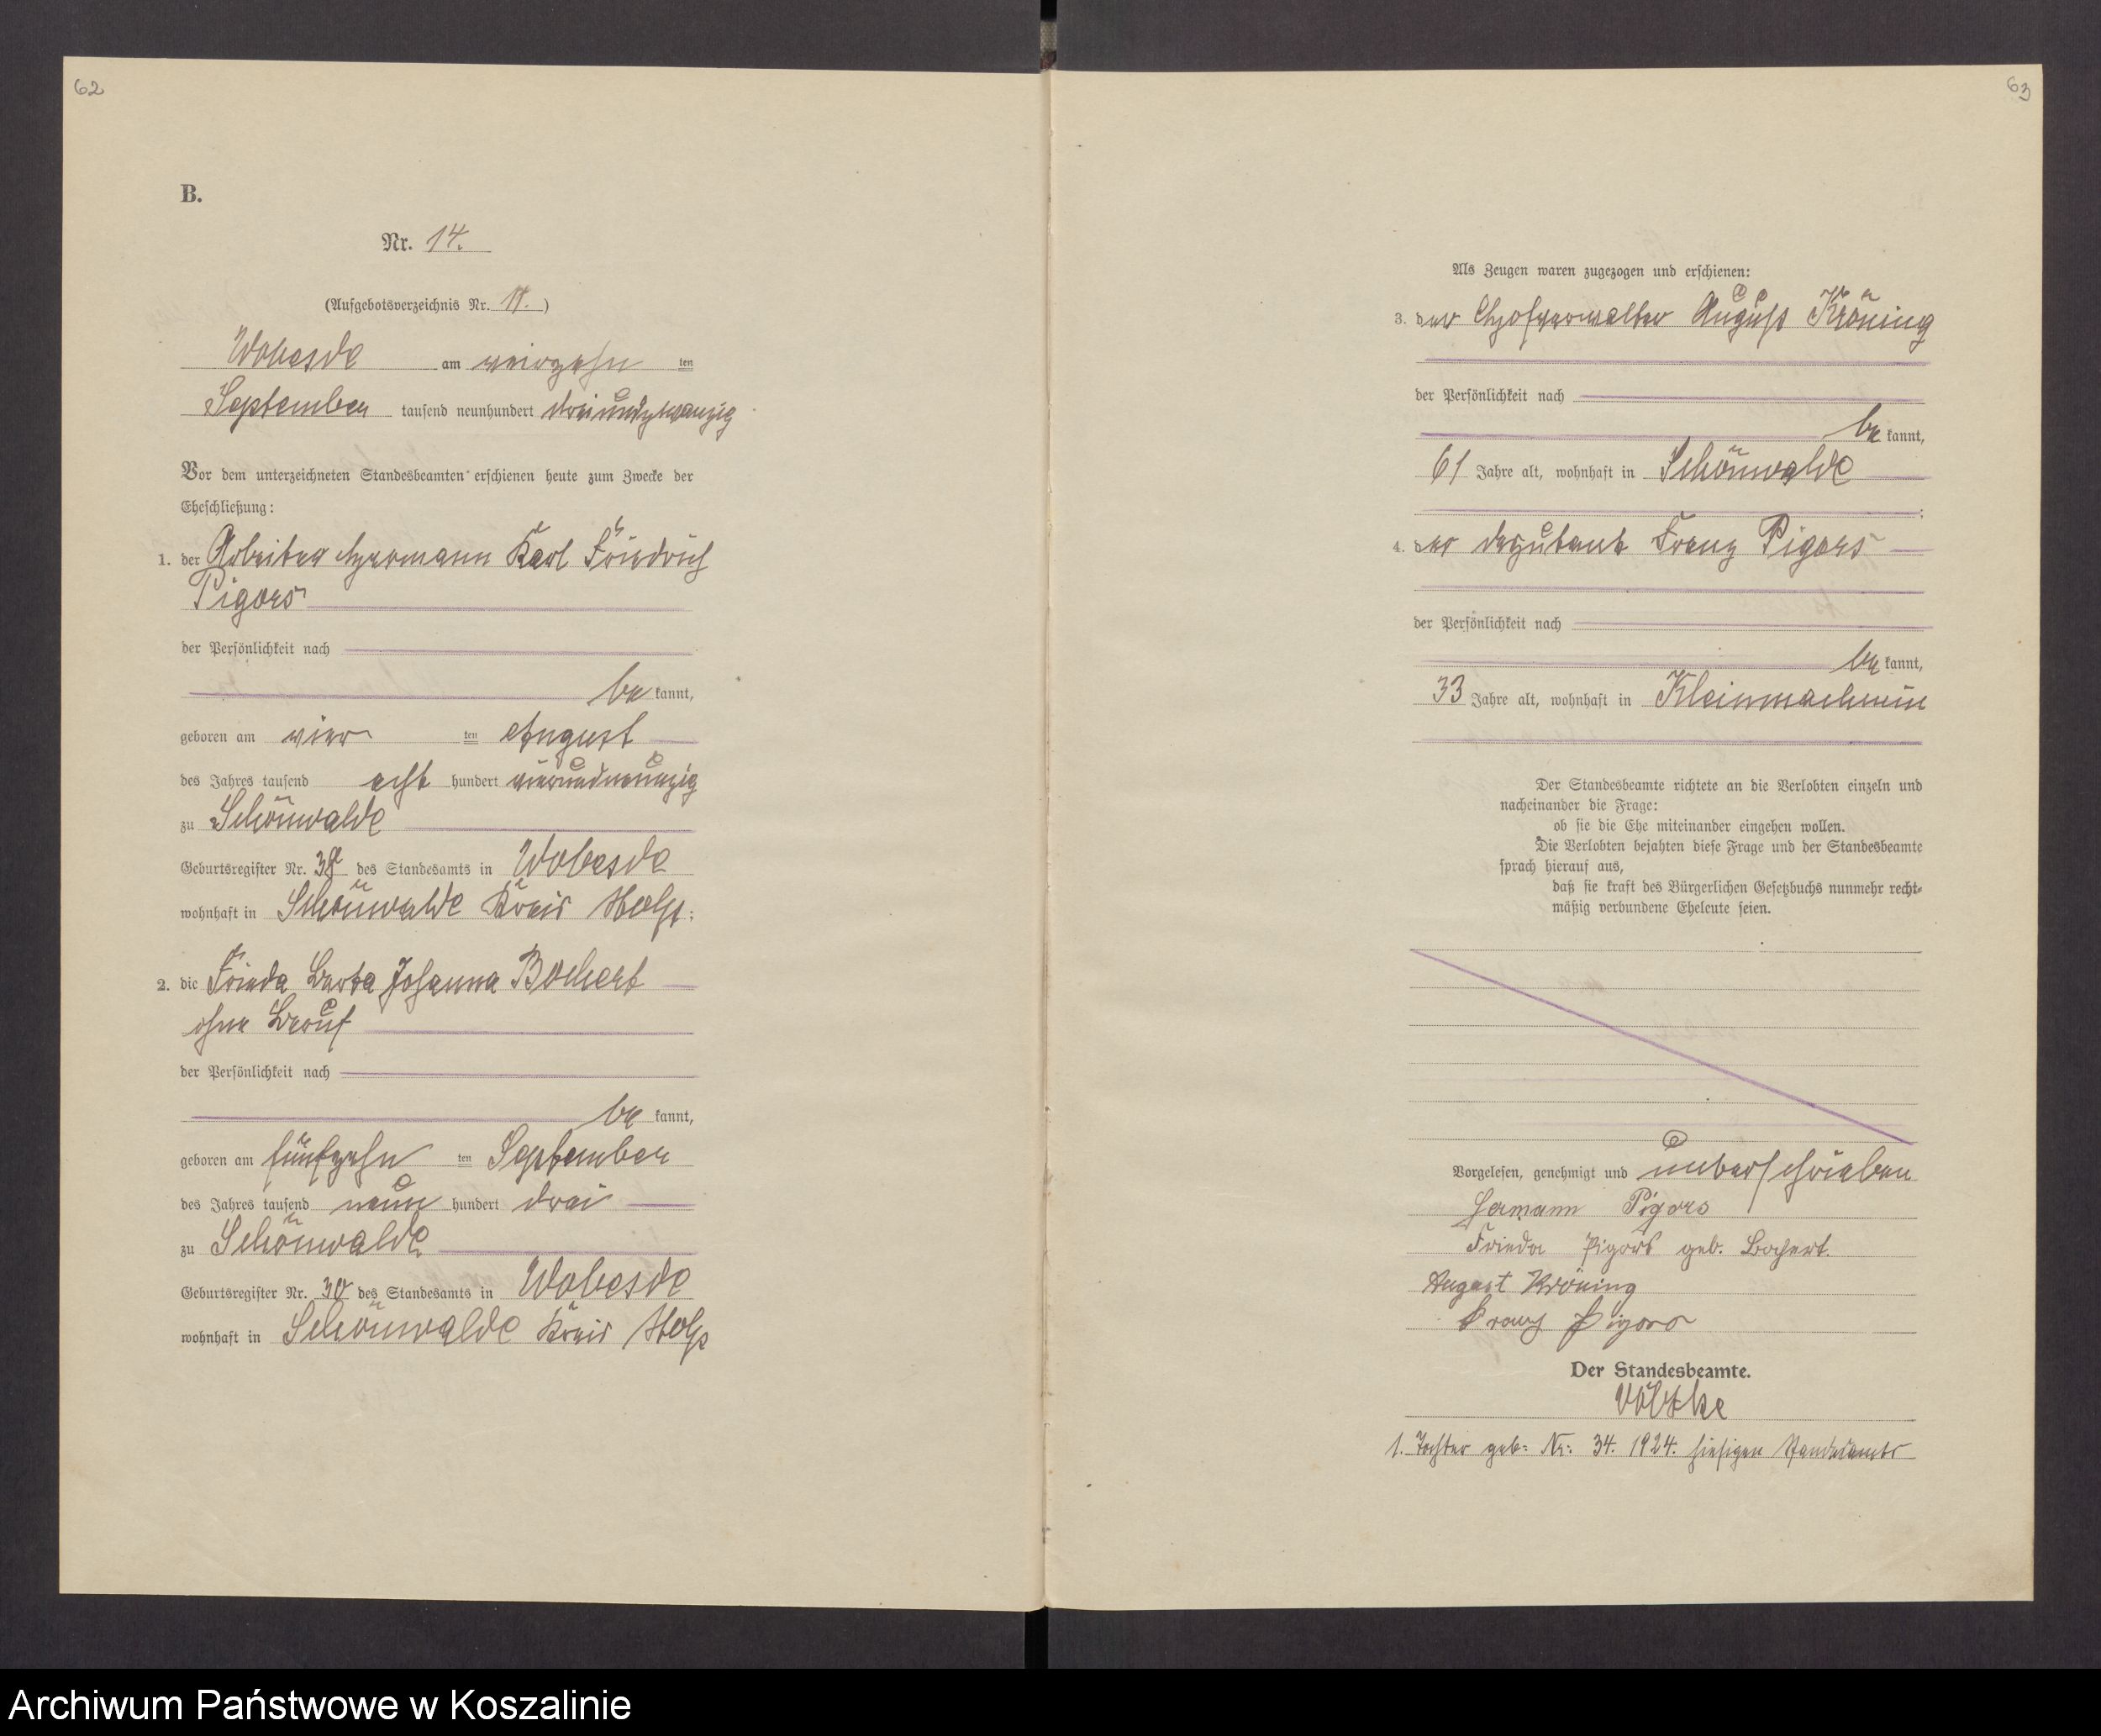 62
B.
Nr. 14.
(Aufgebotsverzeichnis Nr. 17.)
Wobesde am vierzehn ten
September tausend neunhundert dreiundzwanzig
Vor dem unterzeichneten Standesbeamten erschienen heute zum Zwecke der
Eheschließung:
1. der Arbeiter Hermann Karl Friedrich
Pigors
der Persönlichkeit nach
be kannt,
geboren am vier ten August
des Jahres tausend acht hundert vierundneunzig
zu Schönwalde
Geburtsregister Nr. des Standesamts in Wobesde
wohnhaft in Schönwalde Kreis Stolp;
2. die Frieda Berta Johanna Bochert
ohne Beruf
der Persönlichkeit nach
be kannt,
geboren am fünfzehn ten September
des Jahres tausend neun hundert drei
zu Schönwalde
Geburtsregister Nr. 30 des Standesamts in Wobesde
wohnhaft in Schönwalde Kreis Stolp
63
Als Zeugen waren zugezogen und erschienen:
3. der Hofverwalter August Kröning
der Persönlichkeit nach
be kannt,
61 Jahre alt, wohnhaft in Schönwalde
4. der Deputant Franz Pigors
der Persönlichkeit nach
be kannt,
33 Jahre alt, wohnhaft in Kleinmachmin
Der Standesbeamte richtete an die Verlobten einzeln und
nacheinander die Frage:
ob sie die Ehe miteinander eingehen wollen.
Die Verlobten bejahten diese Frage und der Standesbeamte
sprach hierauf aus,
daß sie kraft des Bürgerlichen Gesetzbuchs nunmehr recht-
mäßig verbundene Eheleute seien.
Vorgelesen, genehmigt und unterschrieben
Hermann Pigors
Frieda Pigors geb. Bochert.
August Kröning
Franz Pigors
Der Standesbeamte.
Völtzke
1. Tochter geb: Nr: 34. 1924. hiesigen Standesamts
Archiwum Państwowe w Koszalinie